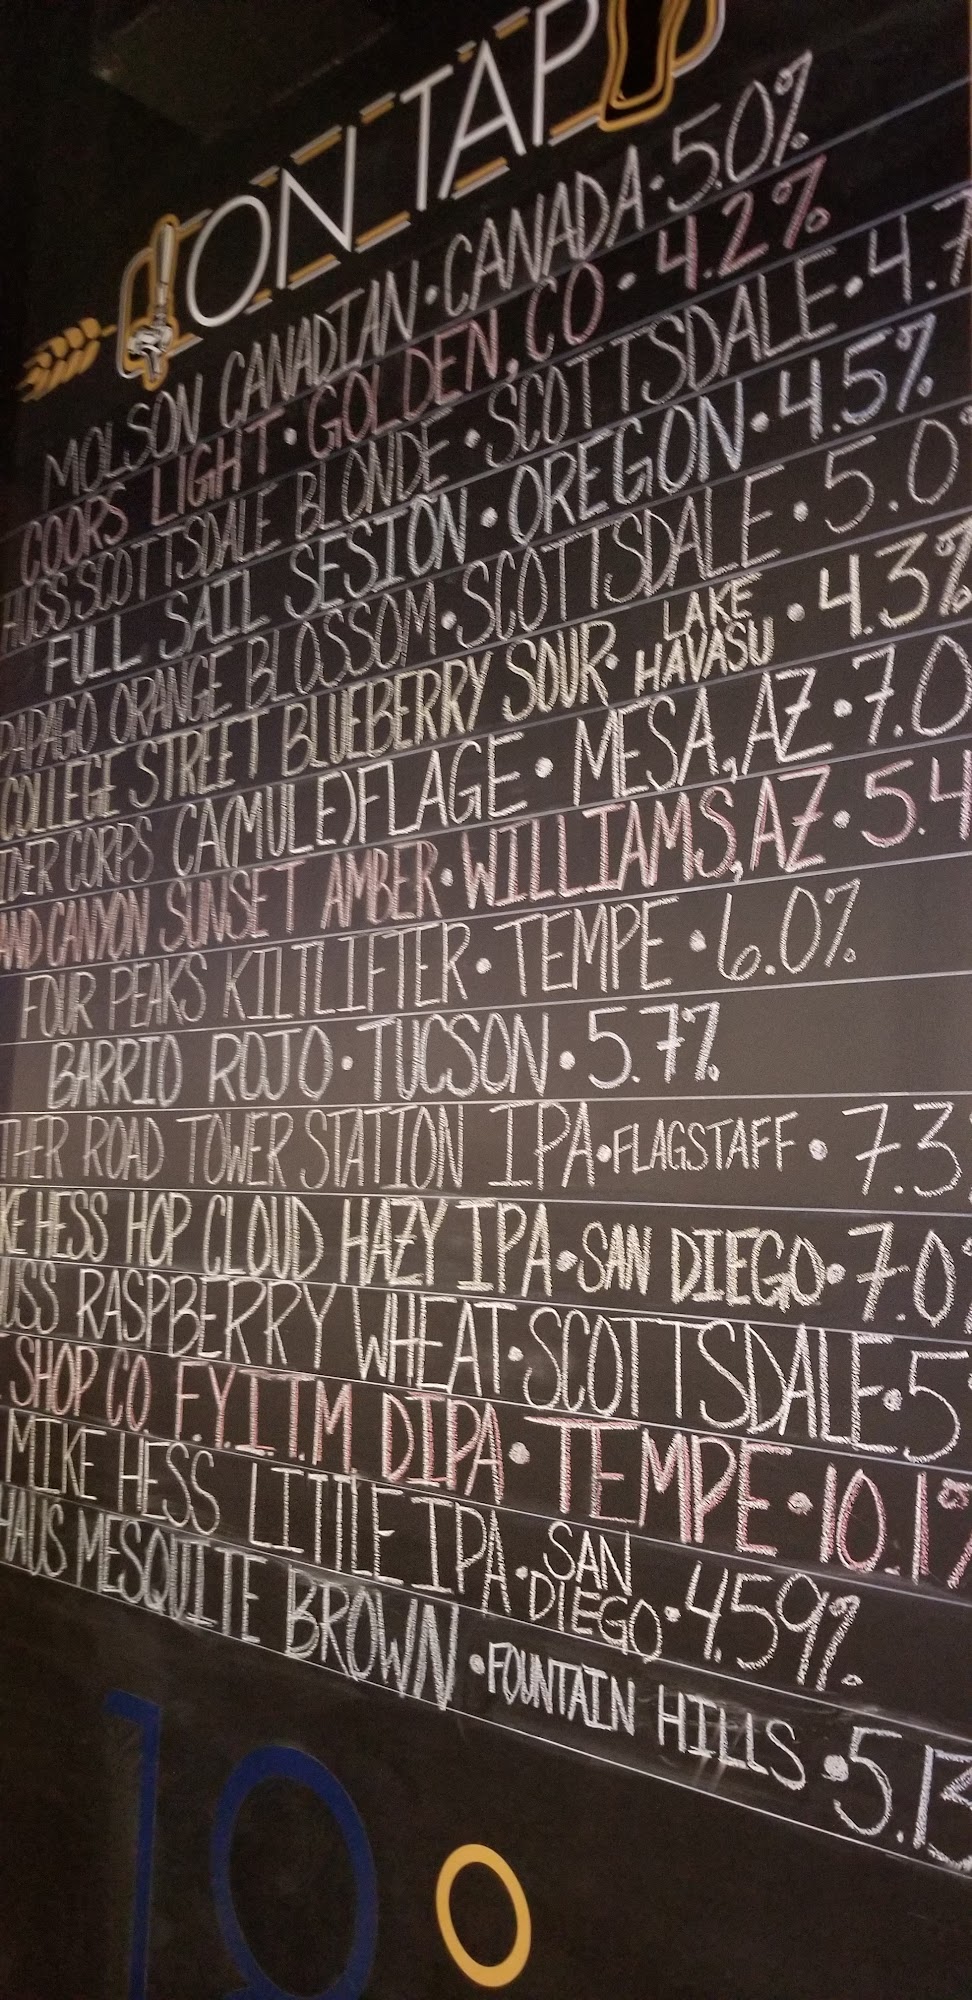 ON TAP
MOLSON CANADIAN • CANADA • 5.0%
COORS LIGHT • GOLDEN, CO • 4.2%
HUSS SCOTTSDALE BLONDE • SCOTTSDALE • 4.7
FULL SAIL SESION • OREGON • 4.5%
PAPAGO ORANGE BLOSSOM • SCOTTSDALE • 5.0
COLLEGE STREET BLUEBERRY SOUR • LAKE HAVASU • 4.3%
IDER CORPS CA(MULE)FLAGE • MESA, AZ • 7.0
AND CANYON SUNSET AMBER • WILLIAMS, AZ • 5.4
FOUR PEAKS KILTLIFTER • TEMPE • 6.0%
BARRIO ROJO • TUCSON • 5.7%
THER ROAD TOWER STATION IPA • FLAGSTAFF • 7.3
KE HESS HOP CLOUD HAZY IPA • SAN DIEGO • 7.0%
USS RASPBERRY WHEAT • SCOTTSDALE • 5
SHOP CO. F.Y.I.T.M. DIPA • TEMPE • 10.1%
MIKE HESS LITTLE IPA • SAN DIEGO • 4.59%
HAUS MESQUITE BROWN • FOUNTAIN HILLS • 5.13
18°